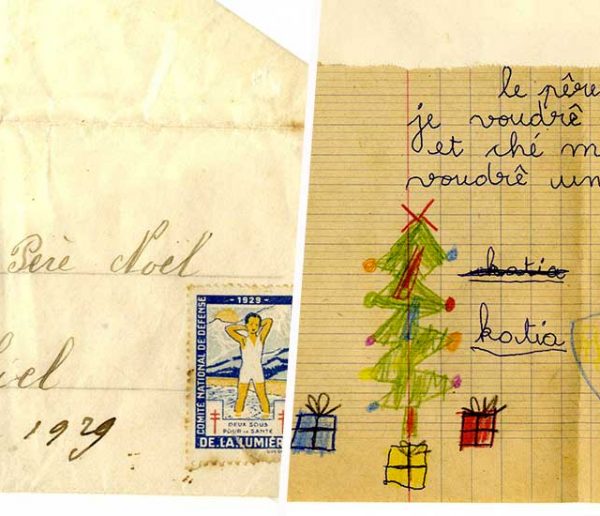 Père Noël
iel
1929
- 1929 -
COMITÉ NATIONAL DE DÉFENSE
DEUX SOUS
POUR LA SANTÉ
DE.LA.LUMIÈR
le père
je voudrê
et ché m
voudrê un
katia
katia